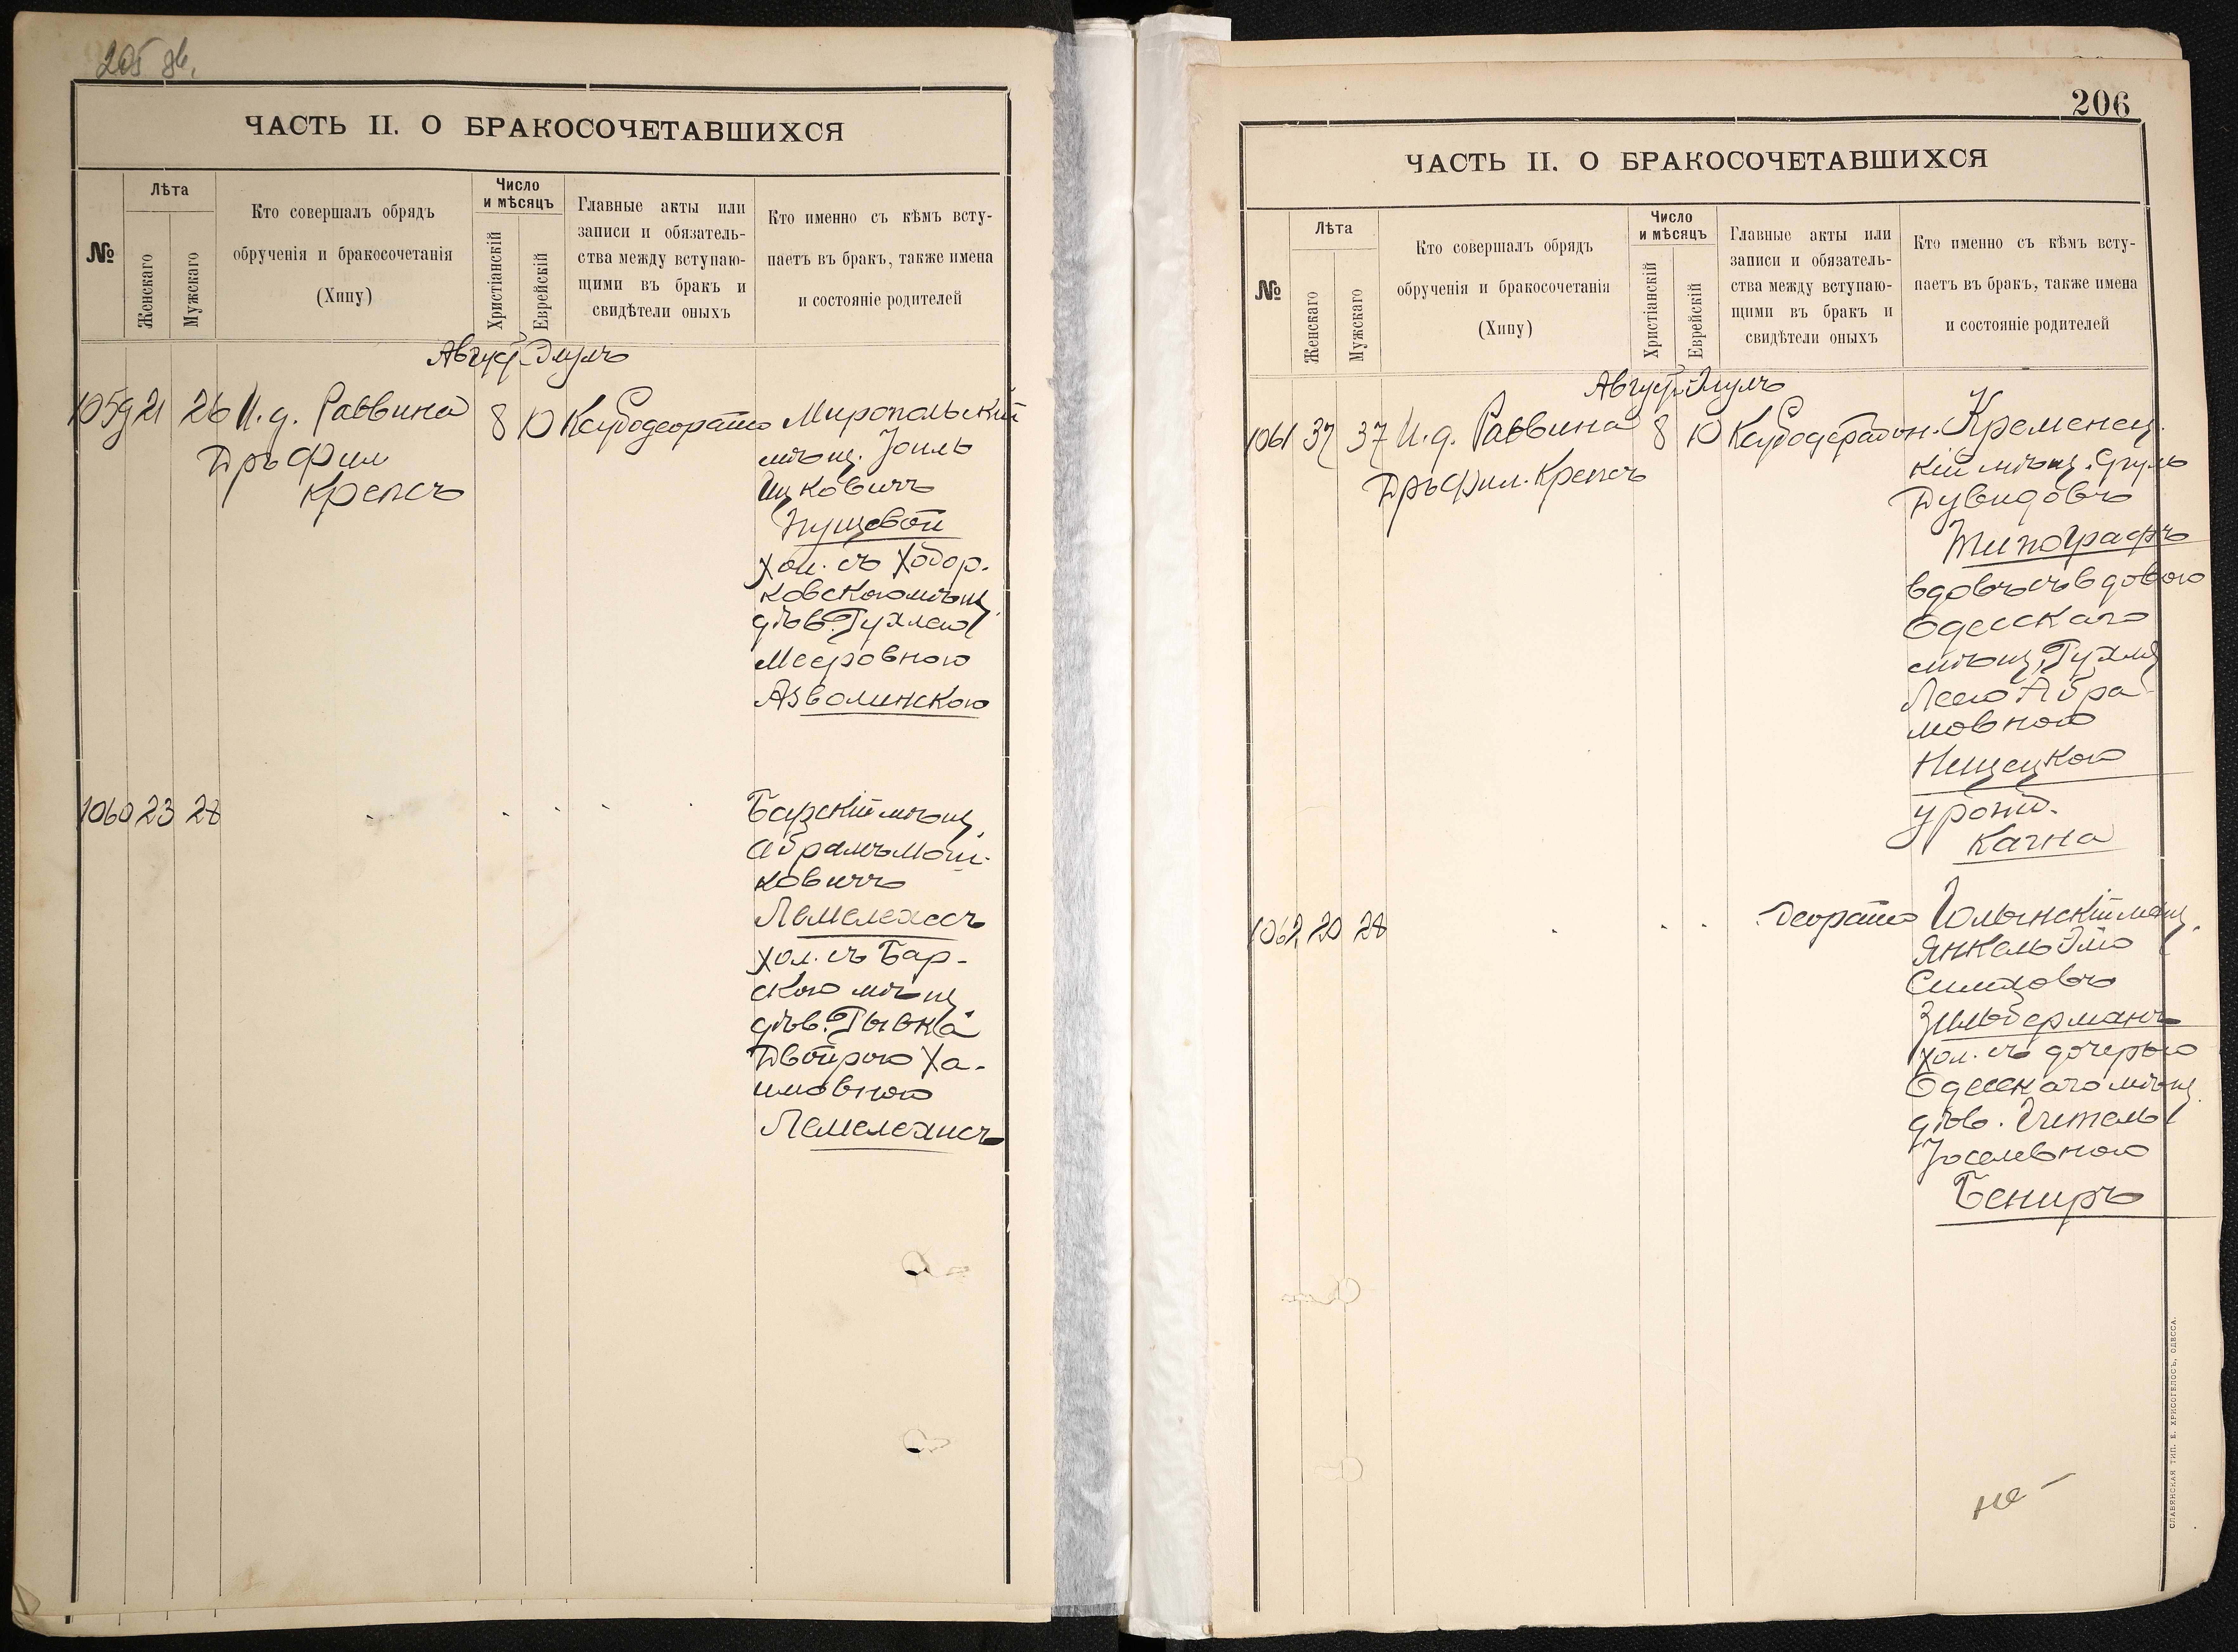 205 об.
ЧАСТЬ II. О БРАКОСОЧЕТАВШИХСЯ
№
Лѣта
Женскаго
Мужскаго
Кто совершалъ обрядъ
обрученія и бракосочетанія
(Хипу)
Число
и мѣсяцъ
Христіанскій
Еврейскій
Главные акты или
записи и обязатель-
ства между вступаю-
щими въ бракъ и
свидѣтели оныхъ
Кто именно съ кѣмъ всту-
паетъ въ бракъ, также имена
и состояніе родителей
Август Элулъ
1059 21 26 И. д. Раввина 8 10 Миропольскій
Дръ Фил
Крепсъ
мѣщ. Іоиль
Ицковичъ
Пущевой
хол. съ Ходор-
ковскою мѣщ.
дѣв. Рухлею
Мееровною
Азволинскою
1060 23 28
Барскій мѣщ.
Абрамъ Мош-
ковичъ
Лемелехесъ
хол. съ Бар-
скою мѣщ.
дѣв. Рывка
Двойрою Ха-
имовною
Лемелехисъ
206
ЧАСТЬ II. О БРАКОСОЧЕТАВШИХСЯ
№
Лѣта
Женскаго
Мужскаго
Кто совершалъ обрядъ
обрученія и бракосочетанія
(Хипу)
Число
и мѣсяцъ
Христіанскій
Еврейскій
Главные акты или
записи и обязатель-
ства между вступаю-
щими въ бракъ и
свидѣтели оныхъ
Кто именно съ кѣмъ всту-
паетъ въ бракъ, также имена
и состояніе родителей
Август Элулъ
1061 37 37 И. д. Раввина 8 10 Кременец.
Дръ Фил. Крепсъ
кій мѣщ. Сруль
Дувидовъ
Типографъ
вдовъ съ вдовою
Одесскаго
мѣщ. Рухля
Леею Абра-
мовною
Нищецкою
урожд.
Качна
1062 20 28
Янкель
Зильберманъ
хол. съ дочерью
Одесскаго мѣщ.
дѣв.
Іоселевною
Бениръ
СЛАВЯНСКАЯ ТИП. Е. ХРИСОГЕЛОСЪ, ОДЕССА.